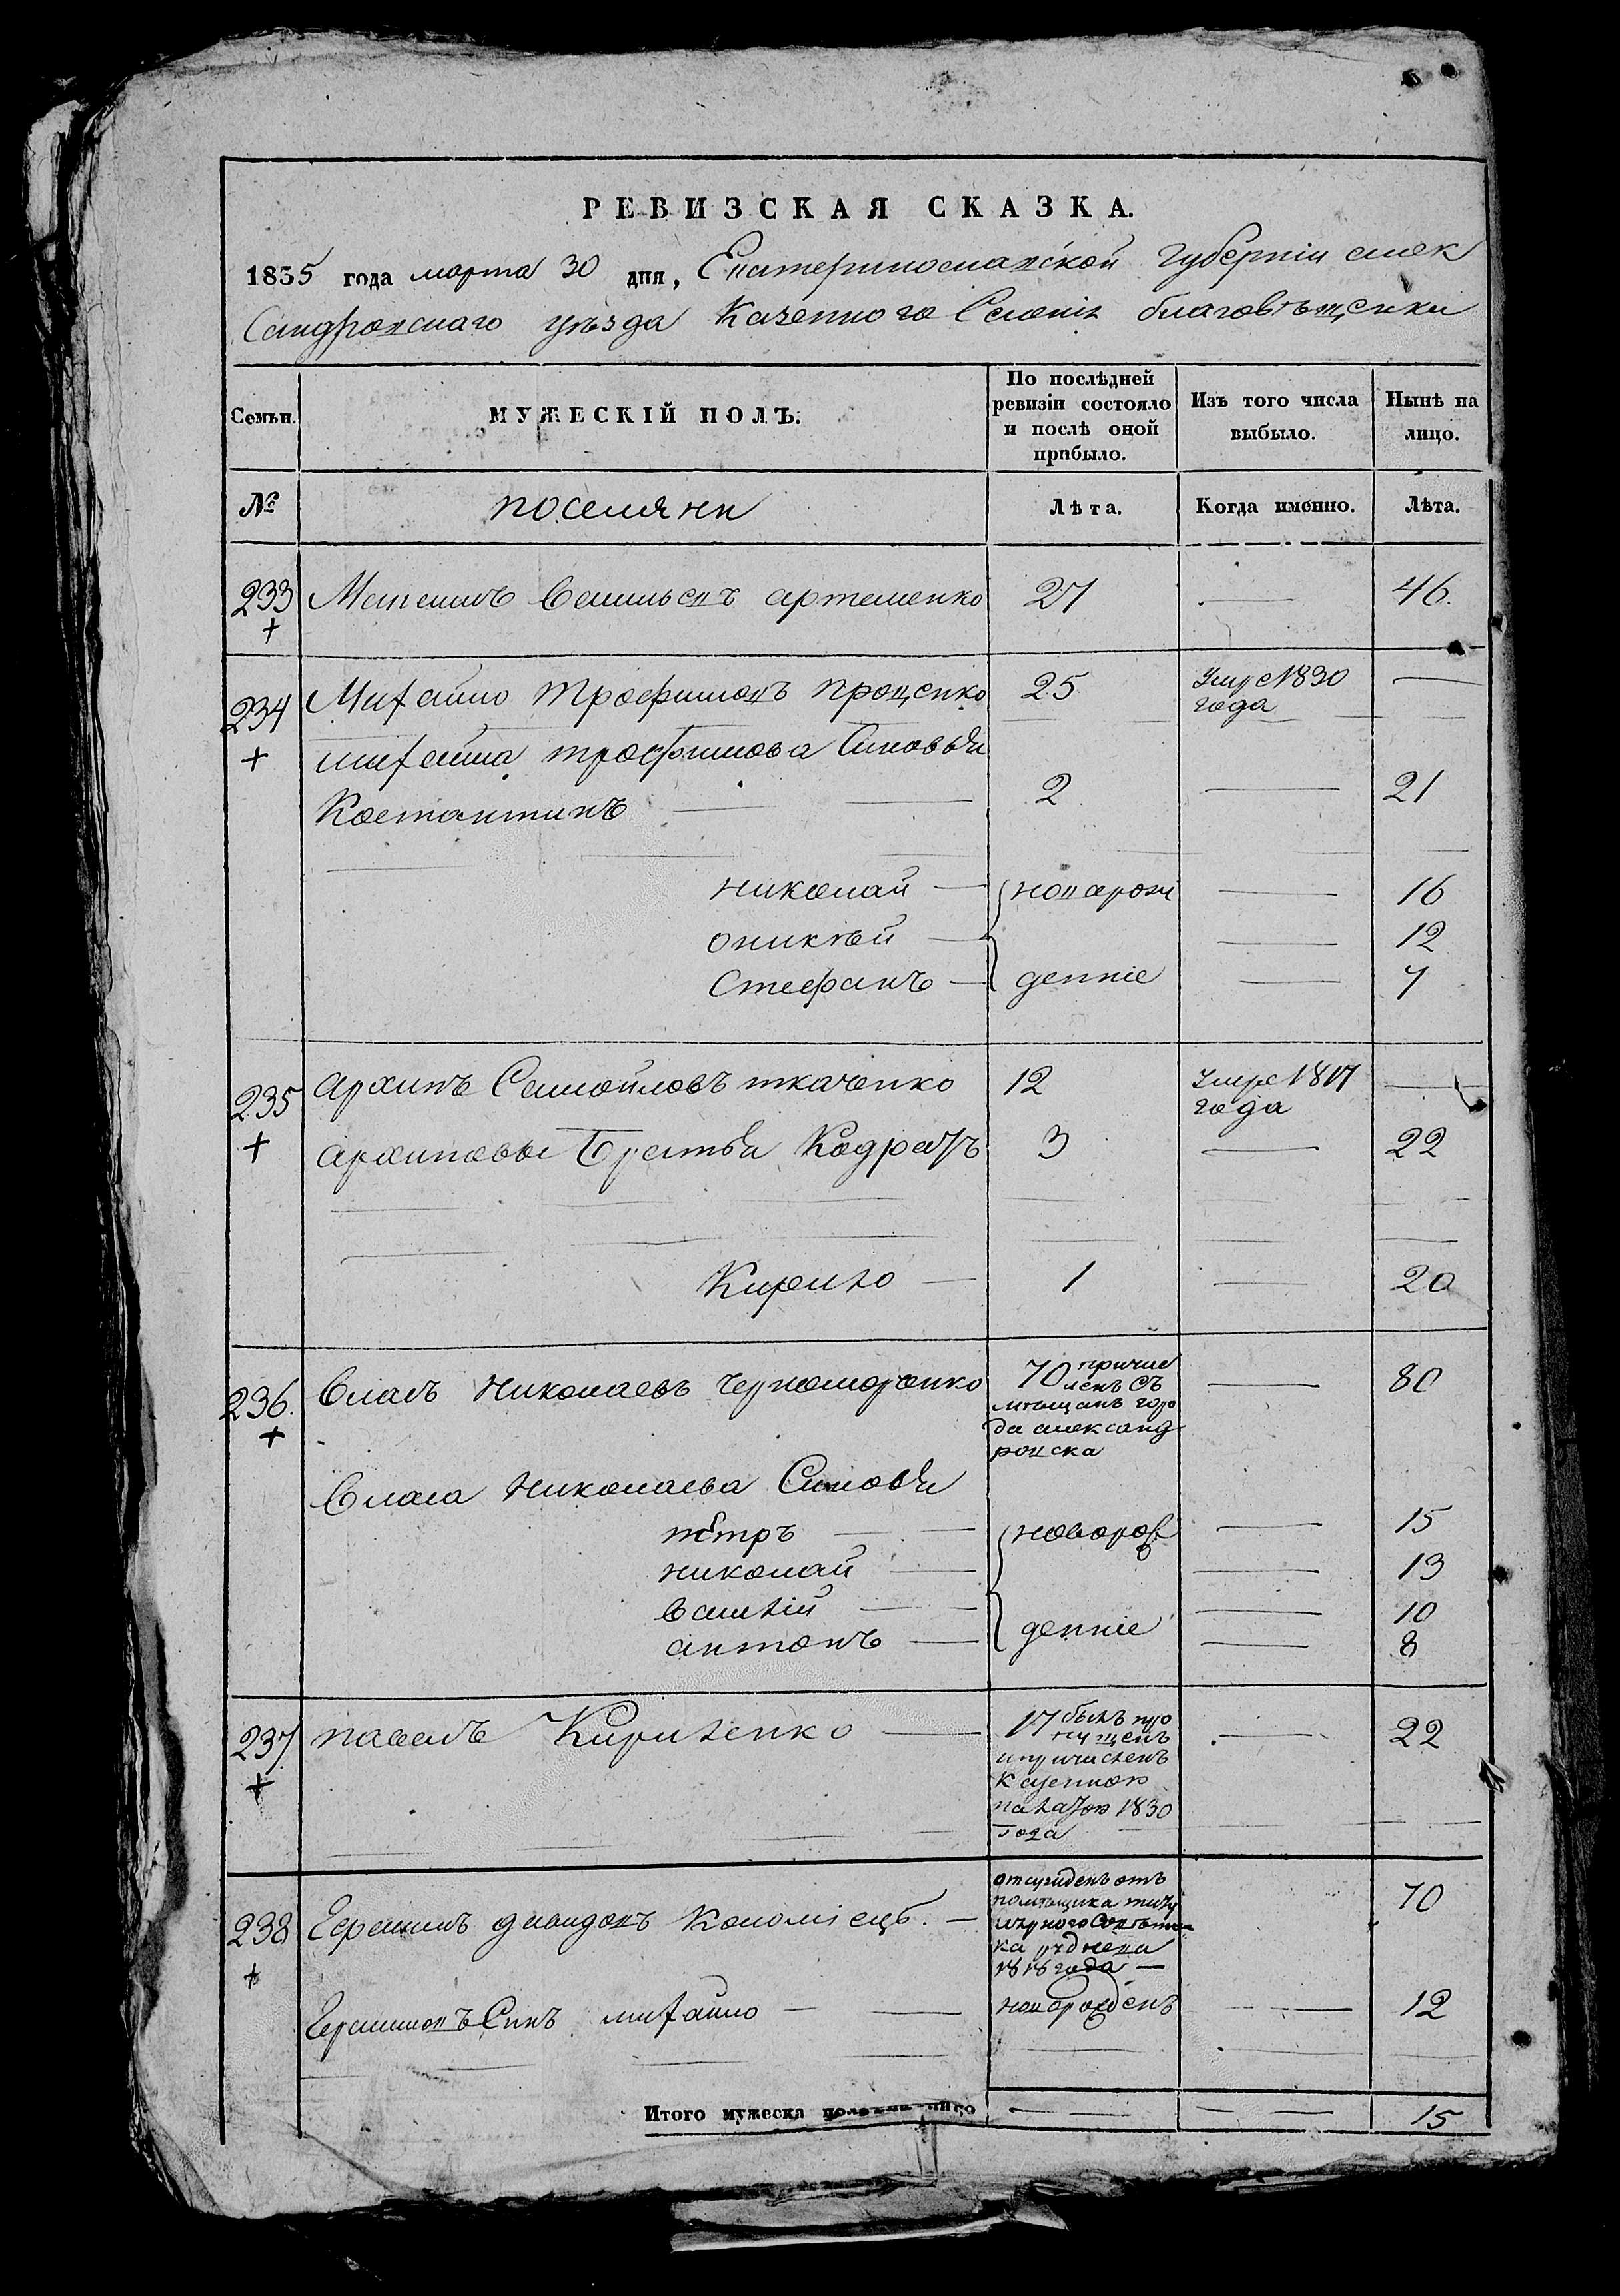 РЕВИЗСКАЯ СКАЗКА.
1835 года марта 30 дня, Екатеринославской губерніи алек
сандровскаго уѣзда Казенного Селенія благовѣщенки
Семьи. МУЖЕСКІЙ ПОЛЪ. По послѣдней ревизіи состояло и послѣ оной прибыло. Изъ того числа выбыло. Нынѣ на лицо.
№ поселяни Лѣта. Когда именно. Лѣта.
233 Васильевъ артеменко 27 — 46.
+
234 Михайло трофимовъ проценко 25 Умре 1830 года —
+ михайла трофимова Синовья
Костантинъ — 2 — 21
николай — новорож — 16
оникѣй — — 12
Стефанъ — денніе — 7
235 архипъ Самойловъ ткаченко 12 Умре 1817 года —
+ архиповы Братья Кодратъ 3 — 22
Кирило — 1 — 20
236. Власъ Николаевъ Черноморченко 70 причис — 80
+ ленъ съ
мещанъ горо
да александ
ровска
Власа Николаева Синовья
петръ — новорож — 15
николай — — 13
василій — — 10
антонъ — денніе — 8
237 павелъ Кириленко — 17 былъ про — 22
+ пущенъ
и причисленъ
казенною
палатою 1830
года
238 Герасимъ давидовъ Коломіецъ. — отсужденъ отъ 70
+ помѣщика
ка
1818 года —
Герасимовъ Синъ михайло — новорожденъ — 12
Итого мужеска пола на лицо — — 15